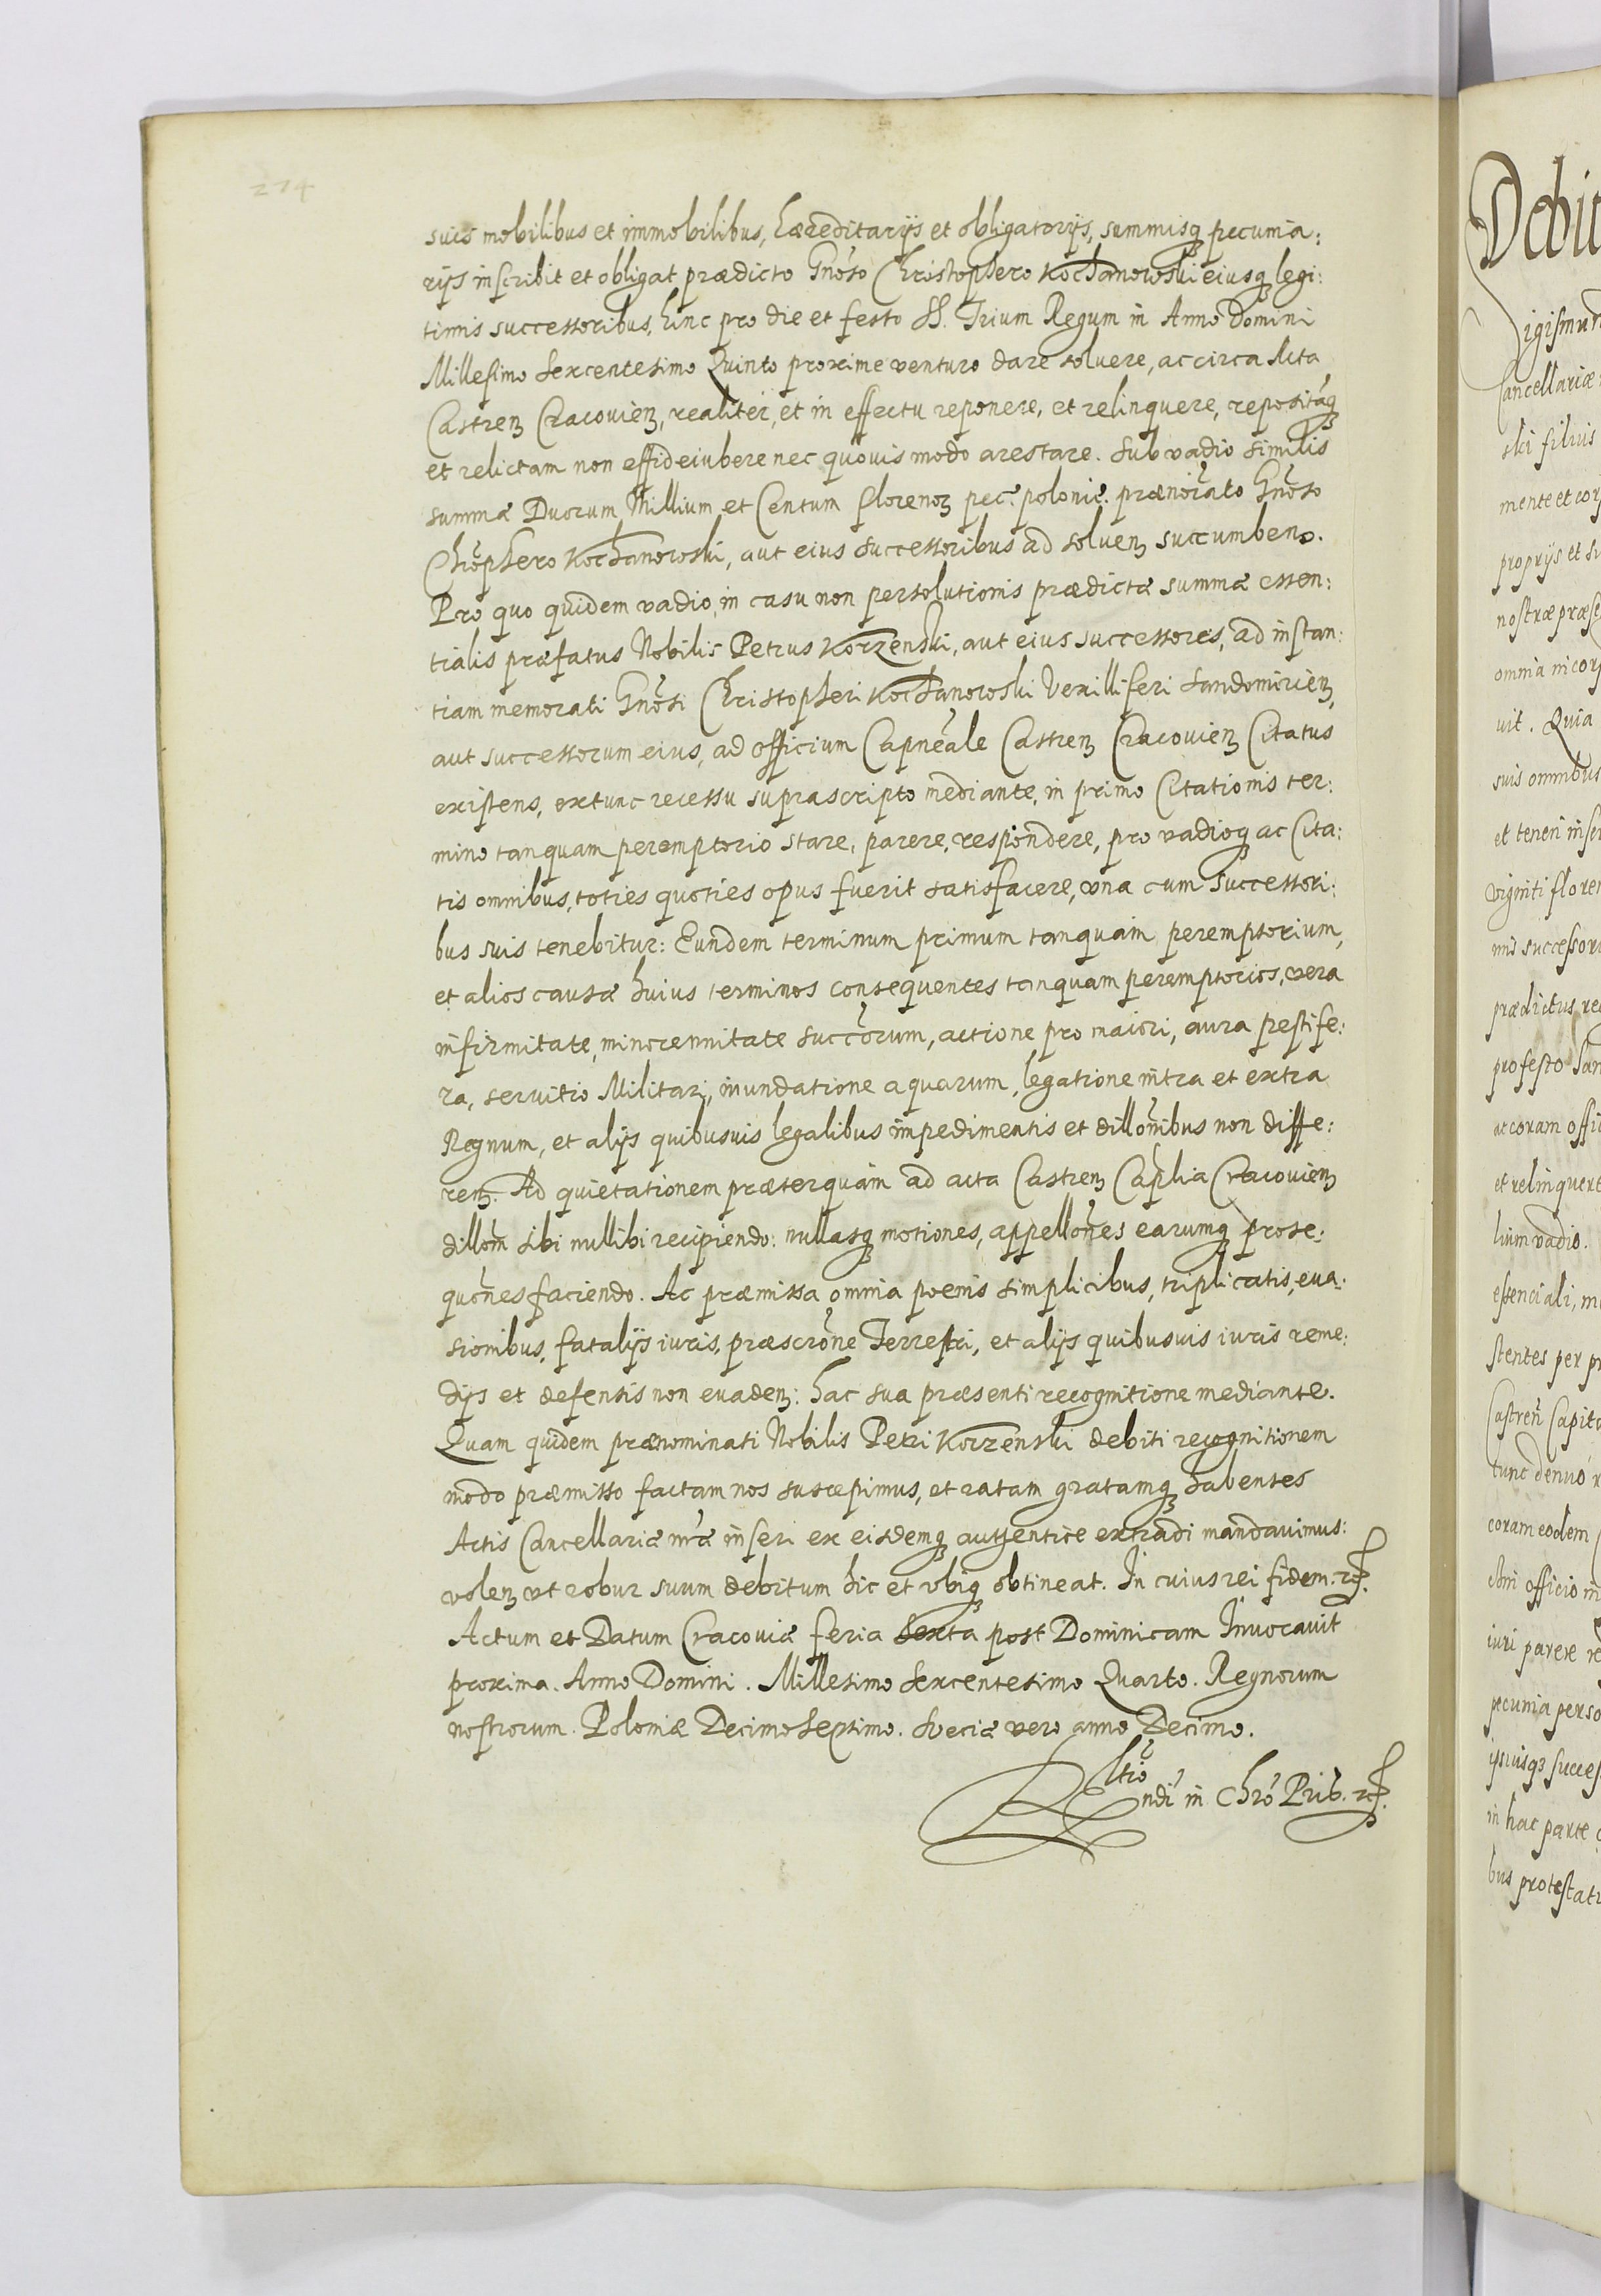 274
suis mobilibus et immobilibus, hæreditarijs et obligatorijs, summisq̃ pecunia:
rijs inscribit et obligat prædicto Gnõso Christophero Kochanowski eiusq̃ legi:
timis successoribus, hinc pro die et festo SS. Trium Regum in Anno Domini
Millesimo Sexcentesimo Quinto proxime venturo dare soluere, ac circa Acta
Castreñ Cracouieñ, realiter, et in effectu reponere, et relinquere, repositáq̃
et relictam non effideiubere nec quouis modo arestare. Sub vadio similis
summæ Duorum Millium et Centum florenoꝝ pec: polonic: prænoĩato Gnõso
Chrõphero Kochanowski, aut eius successoribus ad solueñ succumbeñ.
Pro quo quidem vadio, in casu non persolutionis prædictæ summæ essen:
tialis præfatus Nobilis Petrus Korzenski, aut eius successores, ad instan:
tiam memorati Gnõsi Christopheri Kochanowski Vexilliferi Sandomirieñ,
aut successorum eius, ad officium Capneale Castreñ Cracouieñ Citatus
existens, extunc recessu suprascripto mediante, in primo Citationis ter:
mino tanquam peremptorio stare, parere, respondere, pro vadioq̃ ac Cita:
tis omnibus, toties quoties opus fuerit satisfacere, vna cum successori:
bus suis tenebitur: Eundem terminum primum tanquam peremptorium,
et alios causæ huius terminos consequentes tanquam peremptorios, vera
infirmitate, minorennitate succõrum, actione pro maiori, aura pestife:
ra, seruitio Militari, inundatione aquarum, legatione intra et extra
Regnum, et alijs quibusuis legalibus impedimentis et dillõnibus non diffe:
reñ. Ad quietationem præterquam ad acta Castreñ Caplia Cracouieñ
dillõm sibi nullibi recipiendo: nullasq̃ motiones, appellõnes earumq̃ prose:
quõnes faciendo. Ac præmissa omnia poenis simplicibus, triplicatis, eua:
sionibus, fatalijs iuris, præscrõne Terrestri, et alijs quibusuis iuris reme:
dijs et defensis non euadeñ: hac sua præsenti recognitione mediante.
Quam quidem prænominati Nobilis Petri Korzenski debiti recognitionem
modo præmisso factam nos suscepimus, et ratam gratamq̃ habentes
Actis Cancellariæ nr̃æ inseri ex eisdemq̃ authentice extradi mandauimus:
voleñ vt robur suum debitum hic et vbiq̃ obtineat. In cuius rei fidem. etc.
Actum et Datum Cracouiæ feria sexta post Dominicam Inuocauit
proxima. Anno Domini. Millesimo Sexcentesimo Quarto. Regnorum
nostrorum. Poloniæ Decimo Septimo. Sueciæ vero anno Decimo.
Rltio
ndi in Chrõ Pris. etc.
Debit
Sigismun
Cancellariæ
ski filius
mente et corp
proprijs et su
nostræ præse
omnia in corp
uit. Quia
suis omnibus
et teneri inser
viginti floren
mis successori
prædictus rec
pro festo San
ac coram offi
et relinquere
lium vadio.
essenciali, m
stentes per pr
Castreñ Capita
tunc denuo r
coram eodem
officio in
iuri parere re
pecunia perso
ipsiusq̃ succes
in hac parte
bus protestati